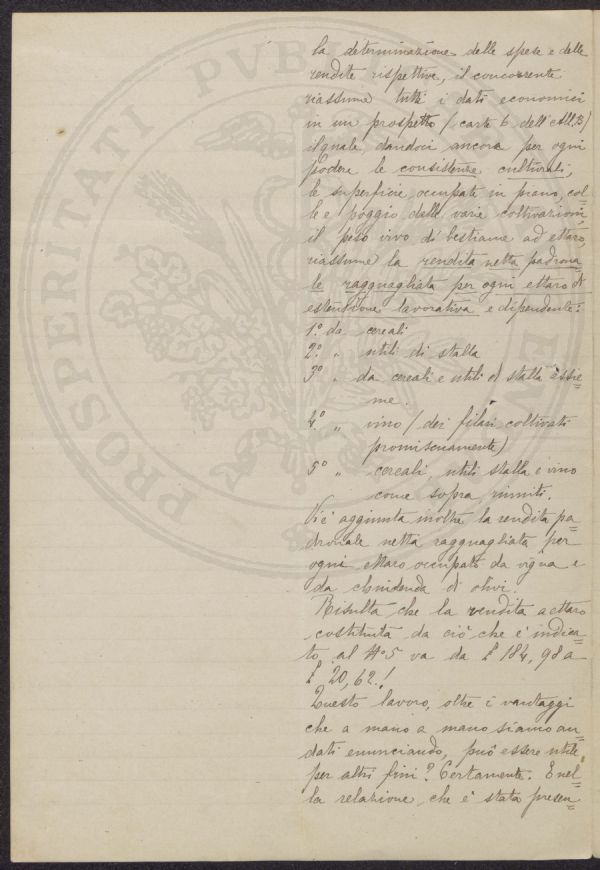 la determinazione delle spese e delle
rendite rispettive, il concorrente
riassume tutti i dati economici
in un prospetto (carte 6 dell'All. B)
il quale, dandoci ancora per ogni
podere le consistenze culturali,
le superficie occupate in piano, col=
le e poggio dalle varie coltivazioni,
il peso vivo di bestiame ad ettaro,
riassume la rendita netta padrona=
le ragguagliata per ogni ettaro di
estensione lavorativa e dipendente:
1º. da cereali
2º. „ utili di stalla
3º „ da cereali e utili di stalla assie=
me.
4º „ vino (dei filari coltivati
promiscuamente)
5º „ cereali, utili stalla e vino
come sopra, riuniti.
Vi è aggiunta inoltre la rendita pa=
dronale netta ragguagliata per
ogni ettaro occupato da vigna e
da chiudenda di olivi.
Risulta che la rendita a ettaro
costituita da ciò che è indica=
to al Nº 5 va da £ 184,98 a
£ 20,62.!
Questo lavoro, oltre i vantaggi
che a mano a mano siamo an=
dati enunciando, può essere utile
per altri fini? Certamente. E nel=
la relazione, che è stata presen=
PROSPERITATI PVBL